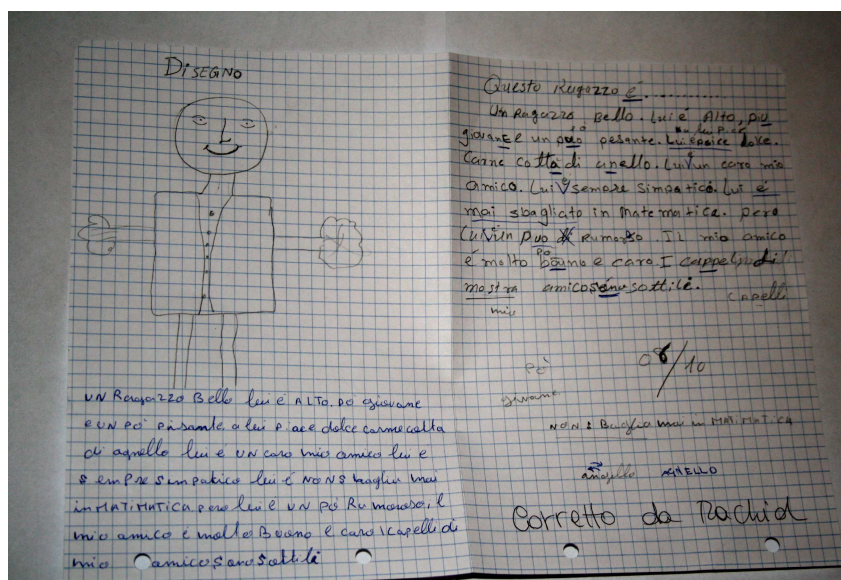 DISEGNO
UN Ragazzo Bello lui é ALTO. PO giovane
e UN PO' pesante, a lui Piace dolce carne cotta
di agnello lui é UN caro mio amico lui e
sempre simpatico lui é NON Sbaglia mai
in MATIMATICA pero lui é UN PÓ Rumoroso, il
mio amico é molto Buono e caro I capelli di
mio amico Sono Sottili
Questo Ragazzo é..........
Un Ragazzo Bello. Lui é Alto, piu
giovane e un puo pesante. Lui epaice dolce.
Carne cotta di anello. Lui é un caro mio
amico. Lui é sempre simpatico. Lui é
mai sbagliato in matematica. pero
Lui un puo di rumorso. Il mio amico
é molto bouno e caro. I cappeli di
mostra amico sono sottile.
mio capelli
PO'
giovane
08/10
NON SBaglia mai in MATIMATICA
angello AGNELLO
Corretto da Rachid